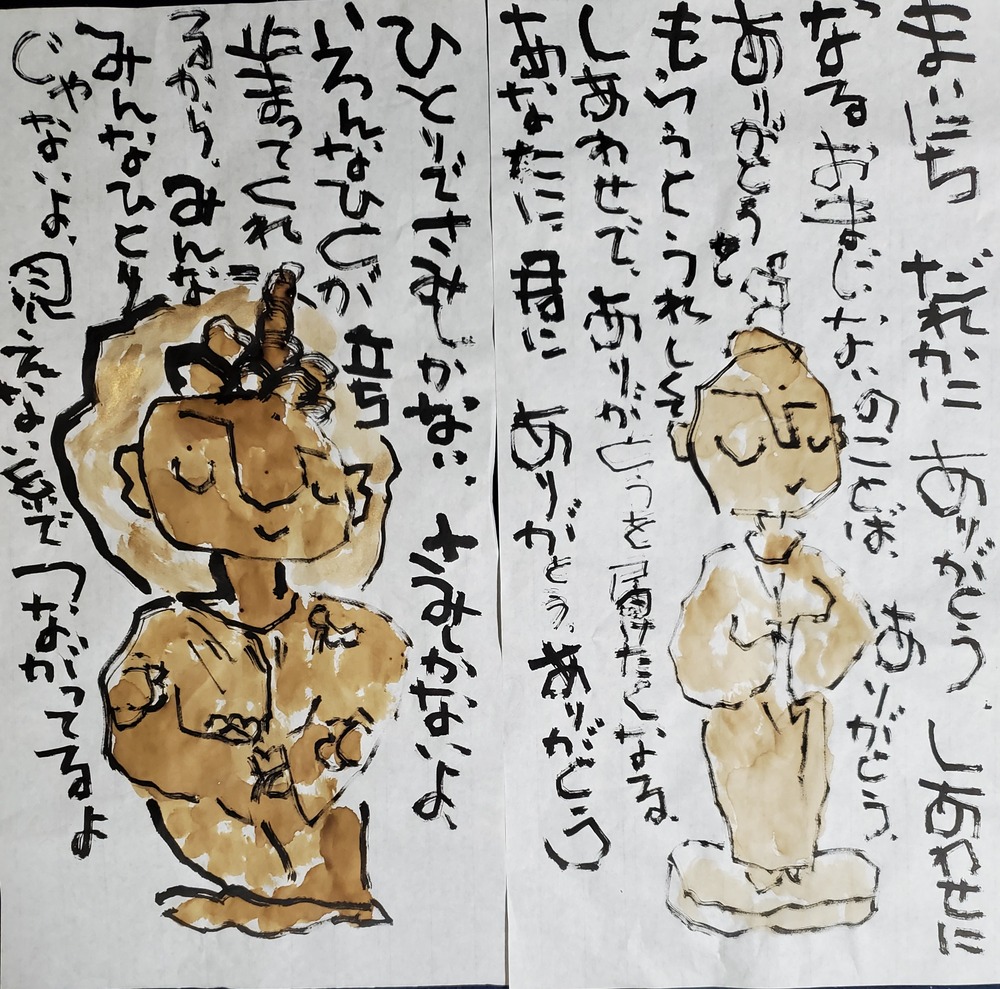 まいにち だれかに ありがとう しあわせに
なるおまじないのことば、ありがとう、
ありがとうを
もらうとうれしくて
しあわせで、ありがとうを届けたくなる、
あなたに、母に ありがとう、ありがとう
ひとりでさみしかない、さみしかないよ、
いろんなひとが立ち
止まってくれ
るから、みんな
みんなひとり
じゃないよ、見えない糸でつながってるよ